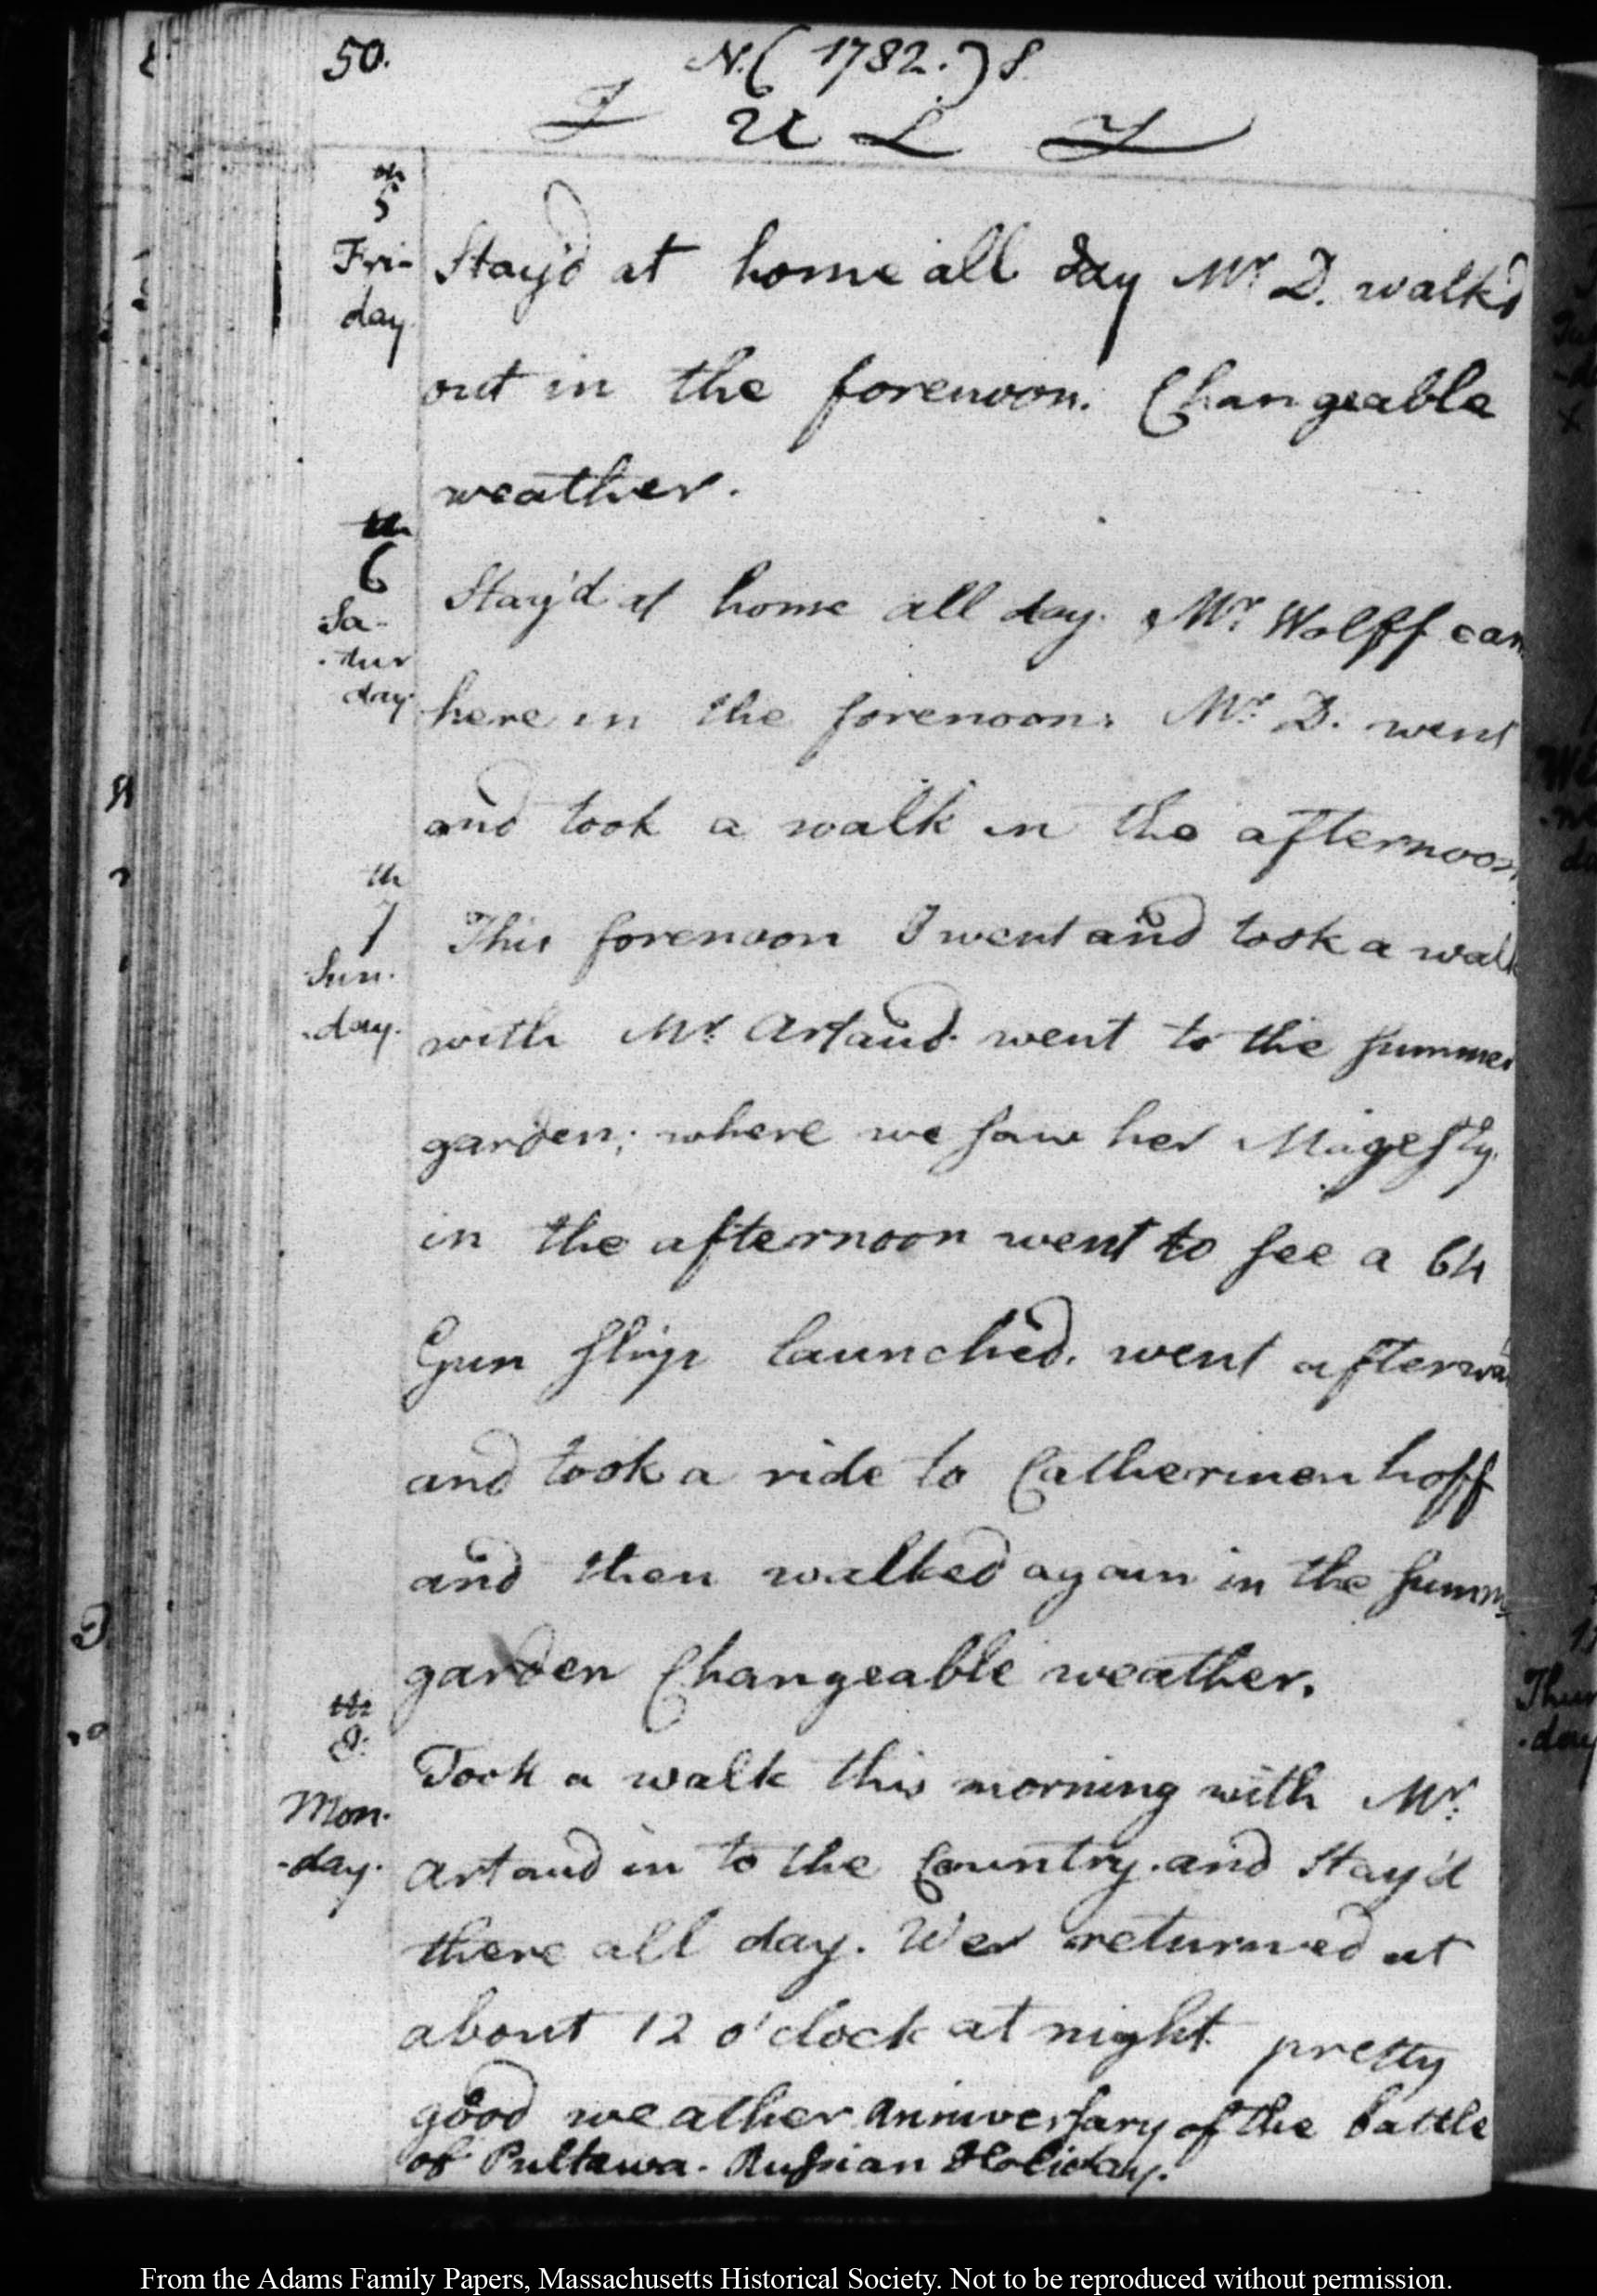 50. N.(1782.)S.
JULY
th
5
Fri-
day
Stay'd at home all day Mr D. walk'd
out in the forenoon. Changeable
weather.
th
6
Sa-
-tur
day
Stay'd at home all day. Mr Wolff cam
here in the forenoon. Mr. D. went
and took a walk in the afternoon.
th
7
Sun.
-day.
This forenoon I went and took a walk
with Mr. Artaud. went to the summer
garden; where we saw her Magesty.
in the afternoon went to see a 64
Gun ship launched. went afterwa
and took a ride to Catherinenhoff
and then walked again in the summ
garden Changeable weather.
th
8.
Mon-
-day.
Took a walk this morning with Mr.
Artaud in to the Country. and Stay'd
there all day. Wer returned at
about 12 o'clock at night pretty
good weather Anniversary of the battle
of Pultawa. Russian Holiday.
Thur
-day
From the Adams Family Papers, Massachusetts Historical Society. Not to be reproduced without permission.